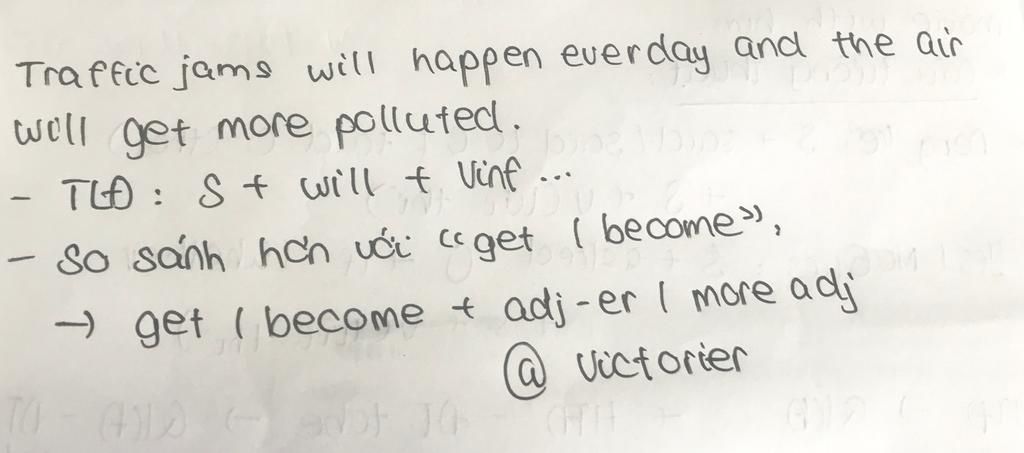 Traffic jams will happen everday and the air
will get more polluted.
- TLĐ : S + will + Vinf ...
- So sánh hơn với "get / become",
→ get / become + adj-er / more adj
@ Victorier